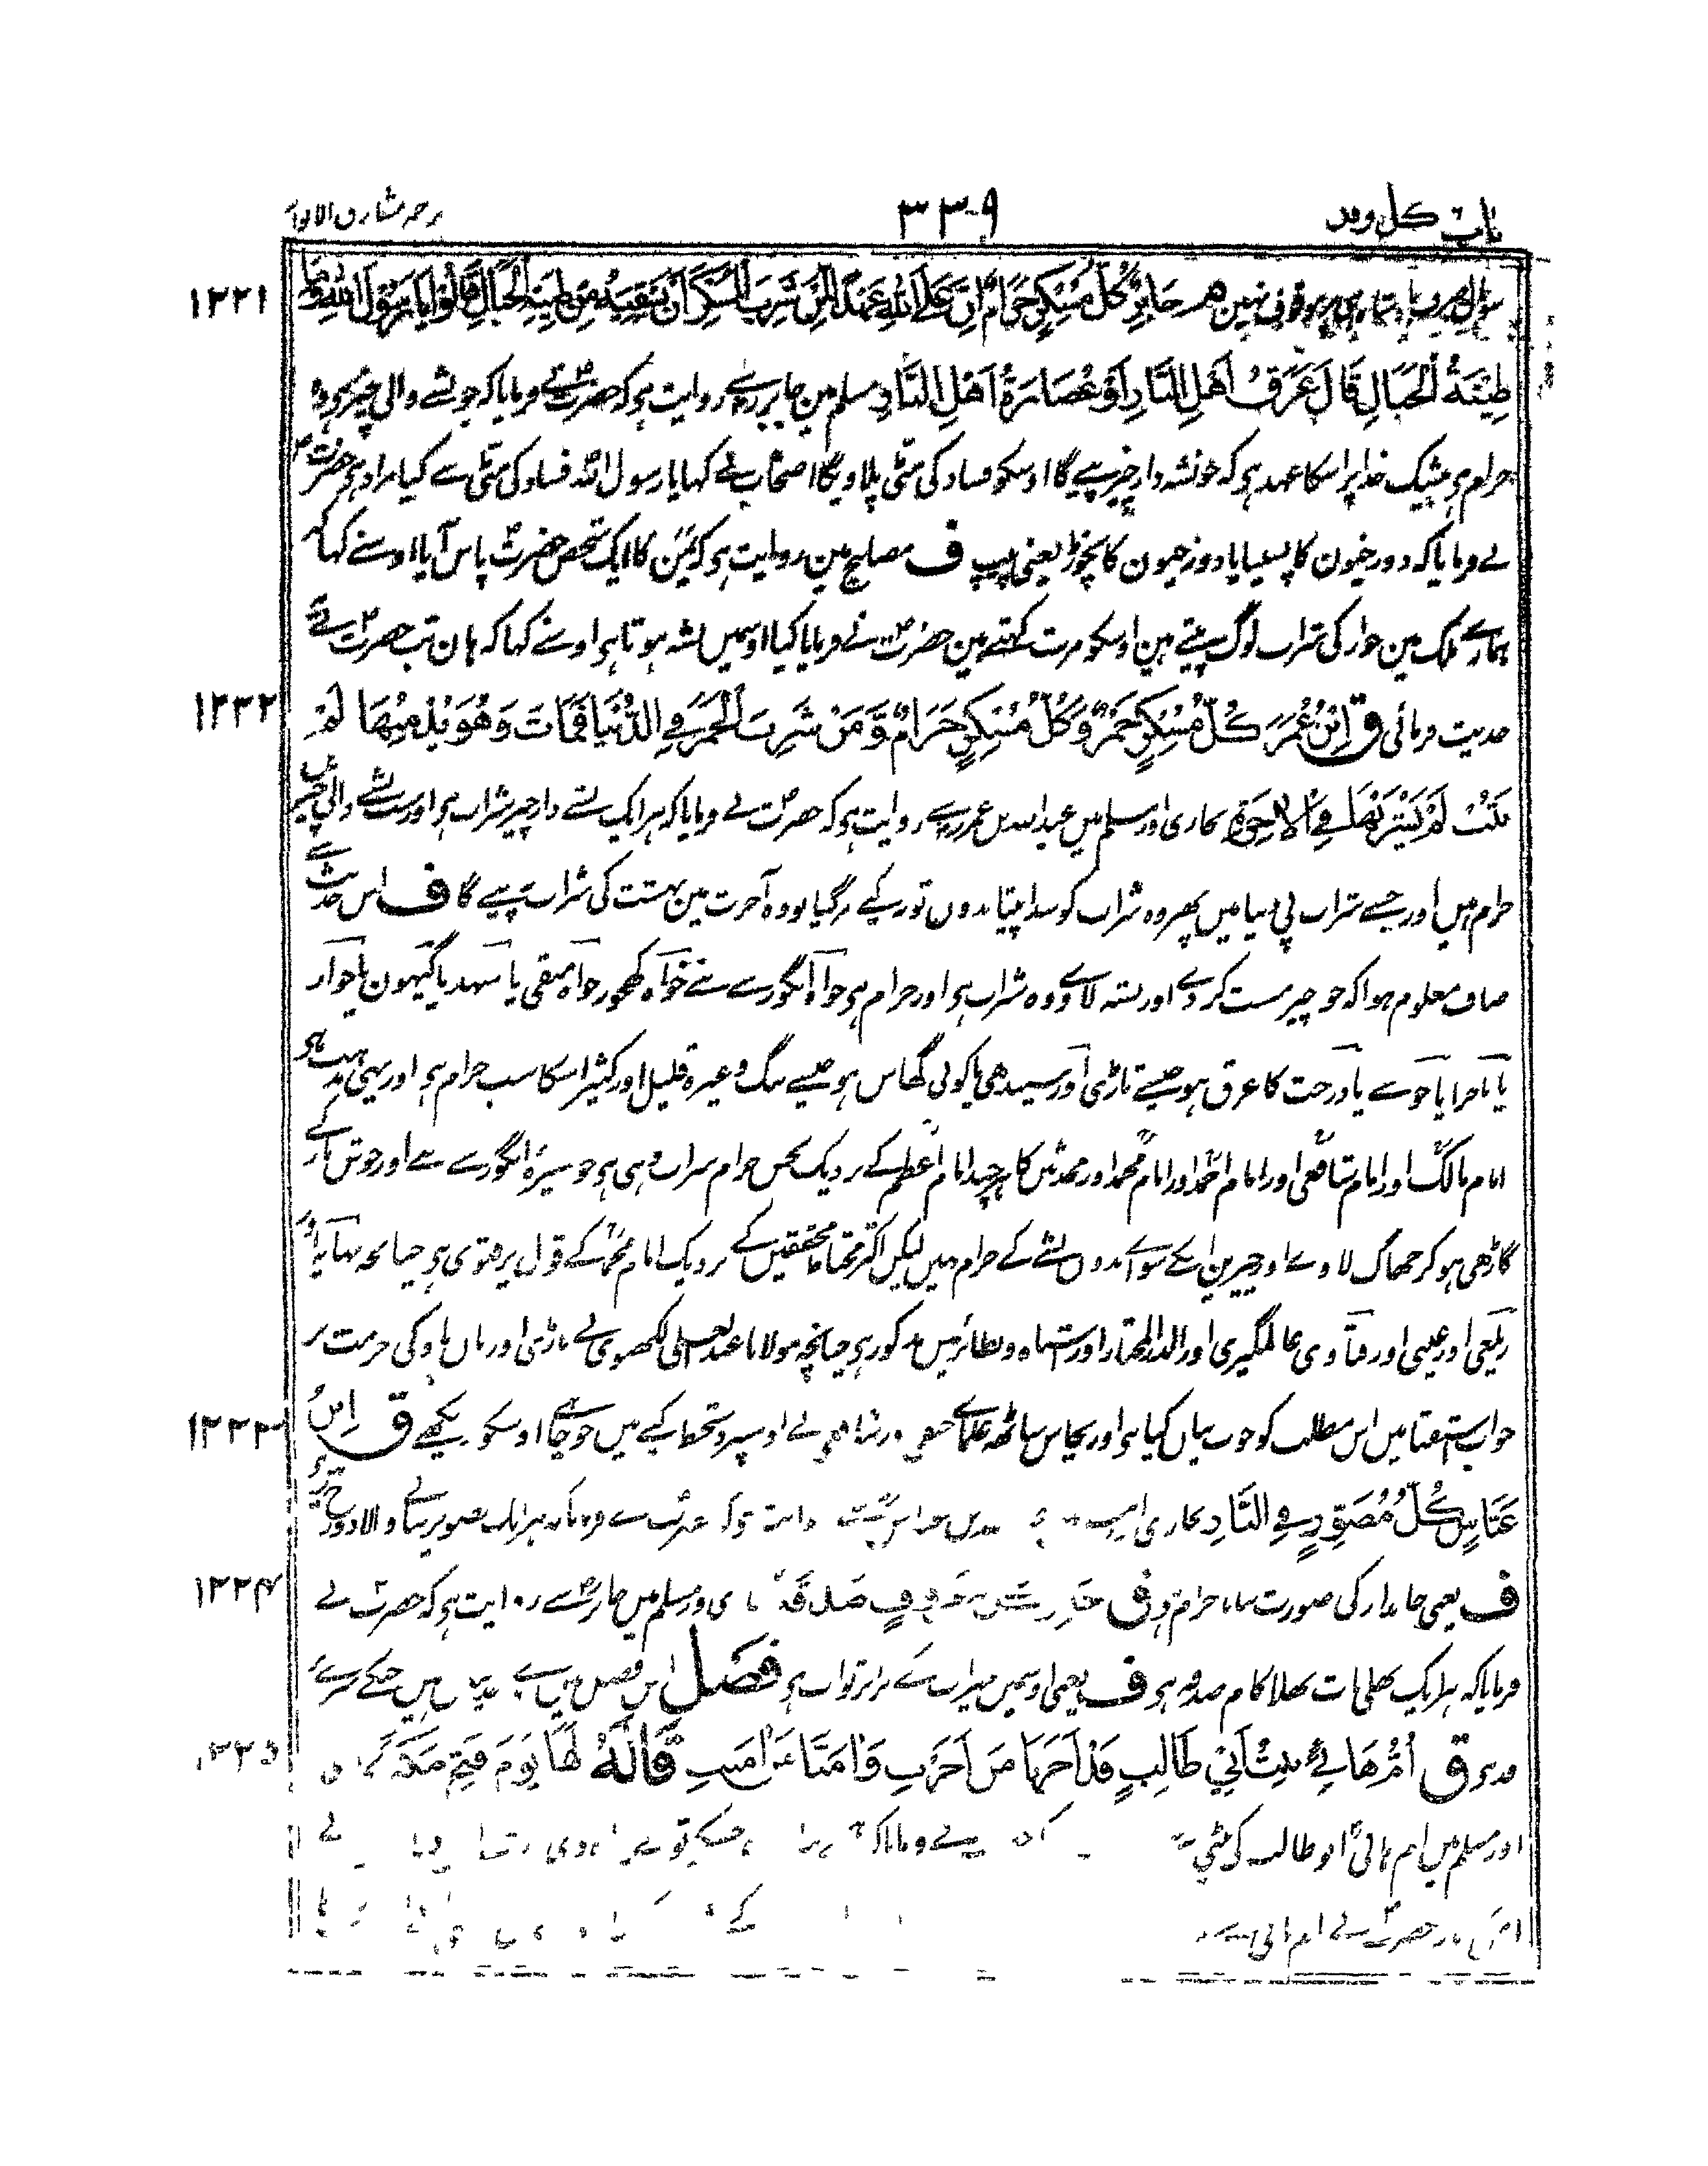 باب کل و قد
۳۳۹
ترجمہ مشارق الانوار
۱۲۳۱
نہیں م جابر کُلُّ مُسْكِرٍ حَرَامٌ اِنَّ عَلَى اللهِ عَهْدًا لِمَنْ شَرِبَ الْمُسْكِرَ اَنْ يَسْقِيَهُ مِنْ طِينَةِ الْخَبَالِ قَالُوْا يَا رَسُوْلَ اللهِ وَمَا
طِيْنَةُ الْخَبَالِ قَالَ عَرَقُ اَهْلِ النَّارِ اَوْ عُصَارَةُ اَهْلِ النَّارِ مسلم مین جابر رض سے روایت ہو کہ حضرت نے فرمایا کہ جو نشے والی چیز ہو وہ
حرام ہو بیشک خدا پر اسکا عہد ہو کہ جو نشہ دار چیز پیے گا اوسکو فساد کی مٹی پلاویگا اصحاب نے کہا یا رسول اللہ فساد کی مٹی سے کیا مراد ہو حضرت
نے فرمایا کہ دوزخیون کا پسینا یا دوزخیون کا نچوڑ یعنی پیپ ف مصابیح مین روایت ہو کہ یمن کا ایک شخص حضرت پاس آیا اوسنے کہا کہ
ہمارے ملک مین جوار کی شراب لوگ پیتے ہین اوسکو مزر کہتے ہین حضرت نے فرمایا کیا اوسمیں نشہ ہوتا ہو اوسنے کہا کہ ہان تب حضرت نے یہ
۱۲۳۲
حدیث فرمائی ق اِبْنُ عُمَرَ كُلُّ مُسْكِرٍ خَمْرٌ وَّكُلُّ مُسْكِرٍ حَرَامٌ وَّمَنْ شَرِبَ الْخَمْرَ فِي الدُّنْيَا فَمَاتَ وَهُوَ يُدْمِنُهَا لَمْ
يَتُبْ لَمْ يَشْرَبْهَا فِي الْاٰخِرَةِ بخاری اور مسلم میں عبد اللہ بن عمر رض سے روایت ہو کہ حضرت نے فرمایا کہ ہر ایک نشے دار چیز شراب ہو اور سب نشے والی چیزیں
حرام ہیں اور جسنے شراب پی دنیا میں پھر وہ شراب کو سدا پیتا بدون توبہ کیے مرگیا تو وہ آخرت مین بہشت کی شراب نہ پیے گا ف اس حدیث سے
صاف معلوم ہوا کہ جو چیز مست کردے اور نشہ لاوے وہ شراب ہو اور حرام ہو خواہ انگور سے بنے خواہ کھجور خواہ منقی یا شہد یا گیہون یا جوار
یا باجرا یا جو سے یا درخت کا عرق ہو جیسے تاڑی اور سیندھی یا کوئی گھاس ہو جیسے بنگ وغیرہ قلیل اور کثیر اسکا سب حرام ہو اور یہی مذہب ہو
امام مالک اور امام شافعی اور امام احمد اور امام محمد اور محدثین کا ہرچند امام اعظم کے نزدیک نجس حرام شراب وہی ہو جو شیرۂ انگور سے بنے اور جوش مار کے
گاڑھی ہو کر جھاگ لاوے اور چیزین اسکے سواے بدون نشے کے حرام نہیں لیکن اکثر محققین کے نزدیک امام محمد کے قول پر فتوی ہو چنانچہ نہایہ اور
زیلعی اور عینی اور فتاوی عالمگیری اور الدر المختار اور اشباہ و نظائر میں مذکور ہو چنانچہ مولانا عبد العلی لکھنوی نے تاڑی اور نان پاو کی حرمت پر
۱۲۳۳
جواب استفتا میں اس مطلب کو خوب بیان کیا ہو اور پچاس ساٹھ علماے حنفی اور شافعی نے اوسپر دستخط کیے ہیں جو چاہے اوسکو دیکھے ق اِبْنُ
عَبَّاسٍ كُلُّ مُصَوِّرٍ فِي النَّارِ بخاری حضرت نے فرمایا کہ ہر ایک تصویر بنانے والا دوزخ
۱۲۳۴
ف یعنی جاندار کی صورت بنانا حرام ہو ق جَابِرٌ صَدَقَةٌ مسلم میں جابر سے روایت ہو کہ حضرت نے
فرمایا کہ ہر ایک بھلی بات بھلا کام صدقہ ہو ف یعنی اوسمیں خیرات کے برابر ثواب ہو فَصْل اس فصل میں ہیں جنکے سرے
۱۲۳۵
قد ہو ق اُمُّ هَانِئٍ بِنْتُ اَبِيْ طَالِبٍ قَدْ اَجَرْنَا مَنْ اَجَرْتِ وَاٰمَنَّا مَنْ اٰمَنْتِ قَالَهُ لَهَا يَوْمَ فَتْحِ مَكَّةَ
اور مسلم میں ام ہانی ابو طالب کی بیٹی
حضرت نے ام ہانی سے